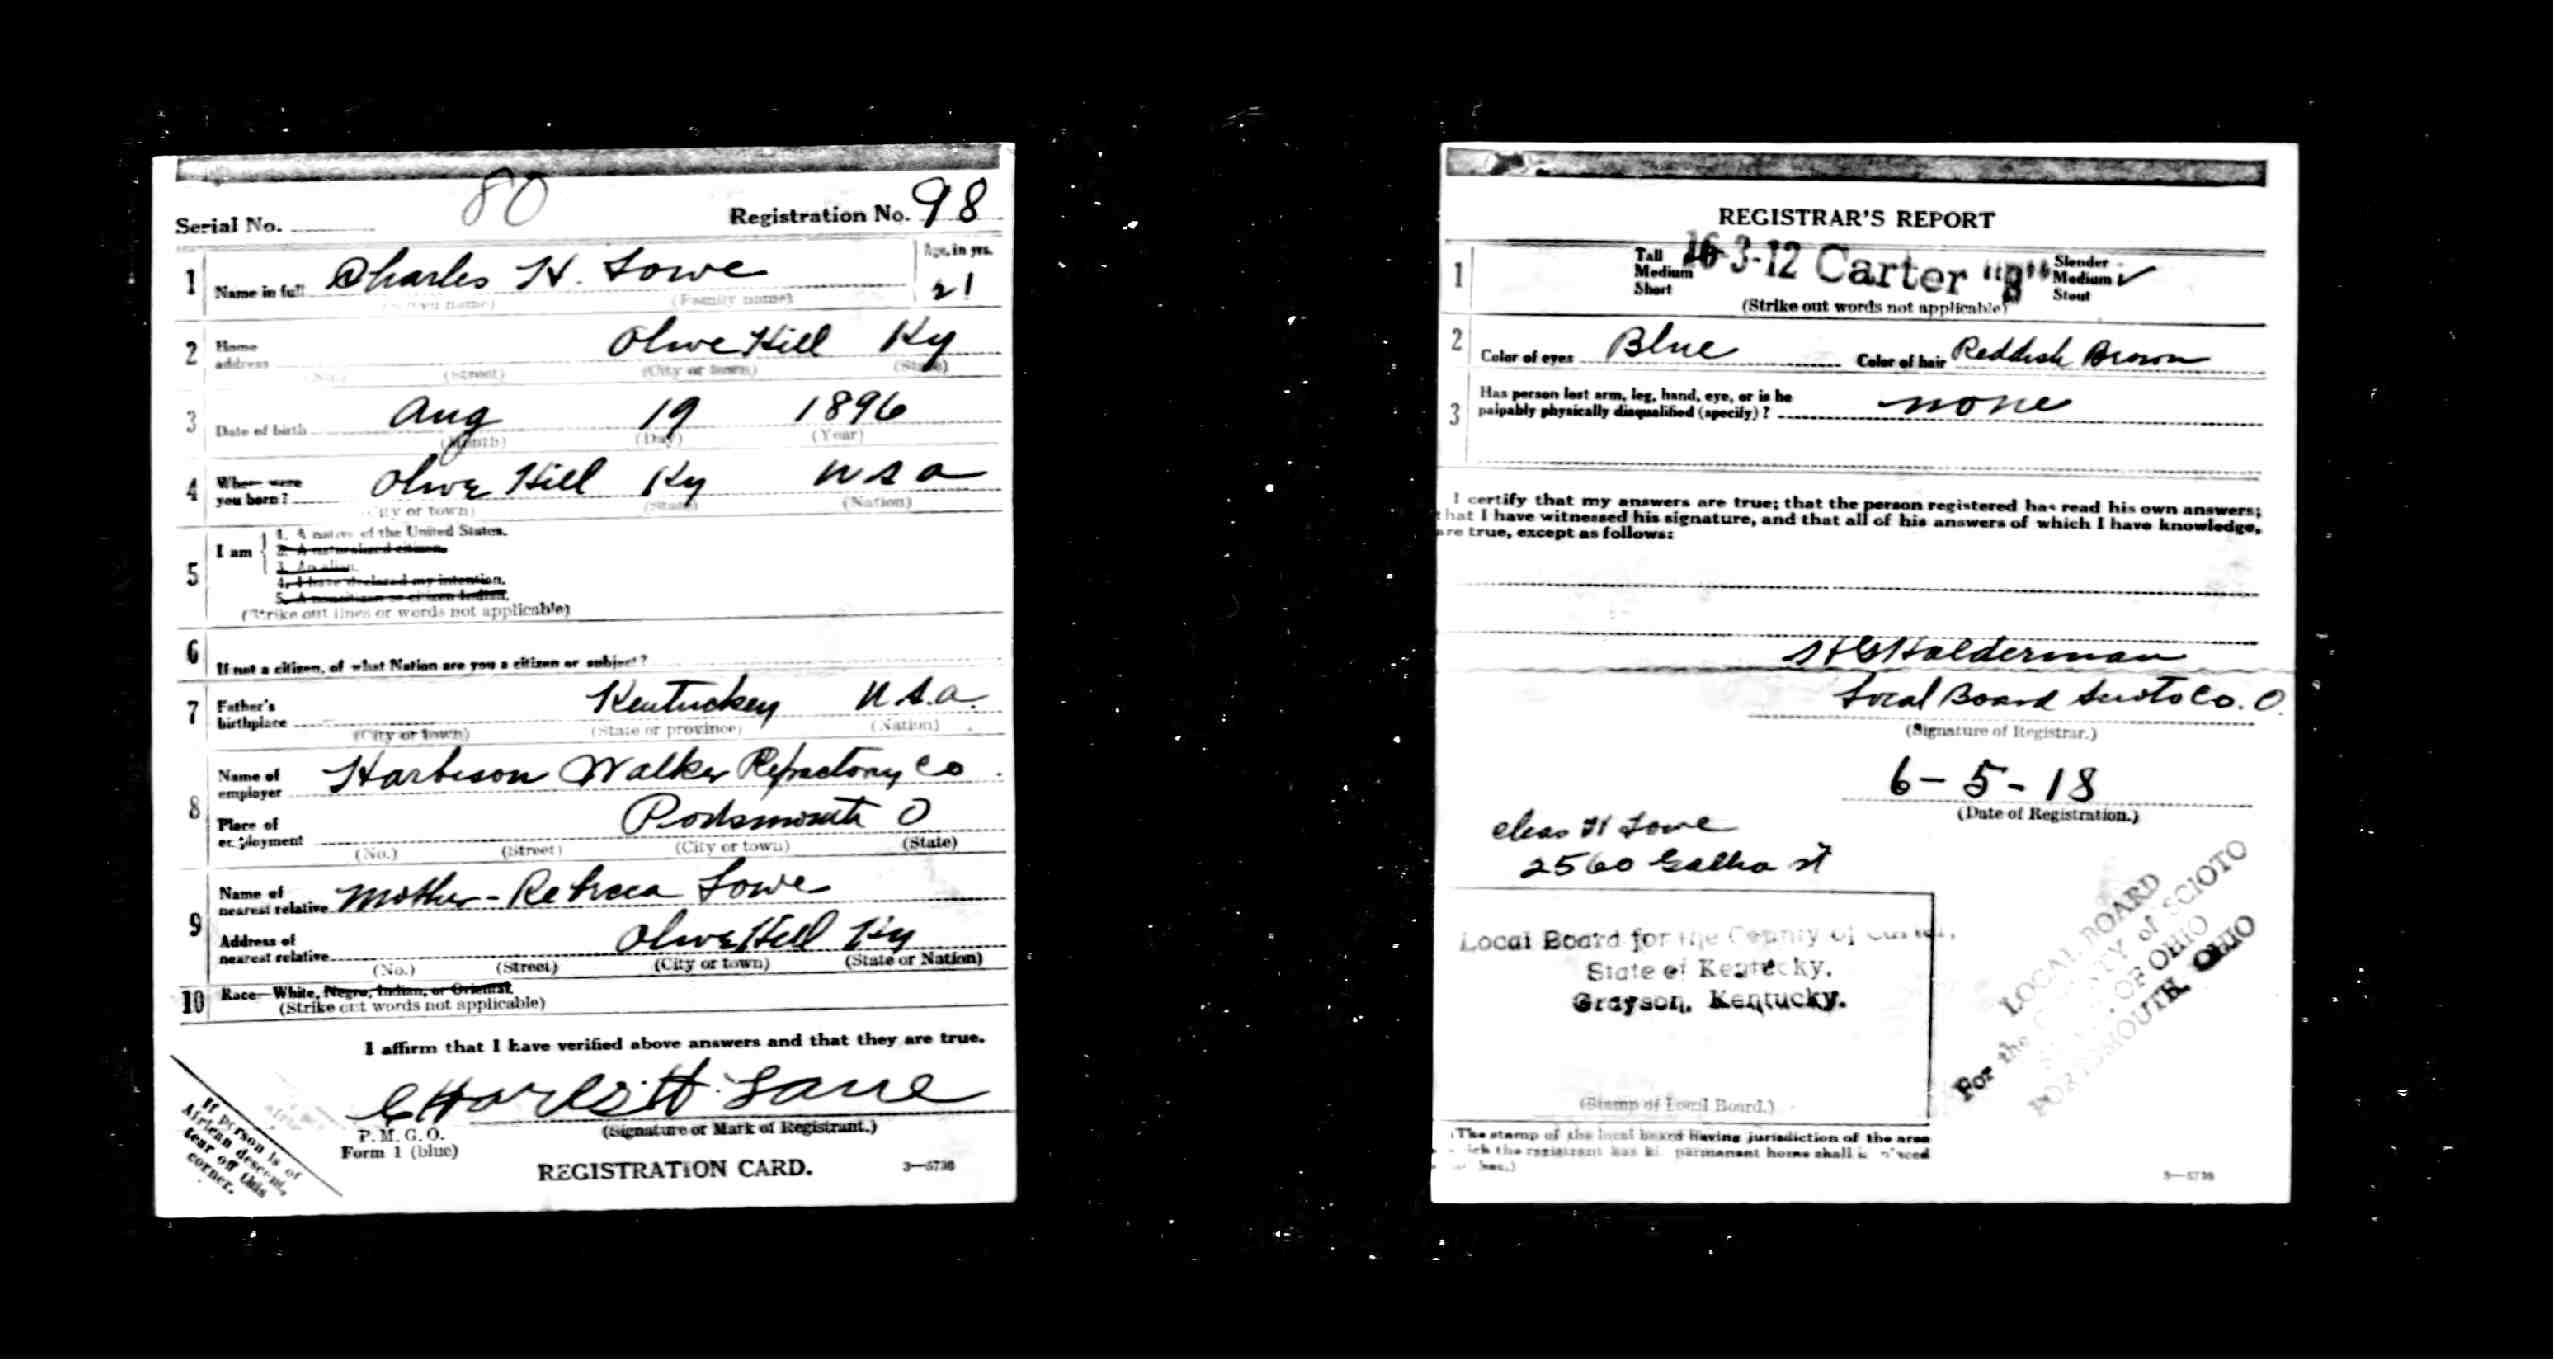 80
Serial No. Registration No. 98
1 Name in full Charles H. Lowe Age, in yrs. 21
(Given name) (Family name)
2 Home address Olive Hill Ky
(No.) (Street) (City or town) (State)
3 Date of birth Aug 19 1896
(Month) (Day) (Year)
4 Where were you born? Olive Hill Ky U S A
(City or town) (State) (Nation)
5 I am
1. A native of the United States.
2. A naturalized citizen.
3. An alien.
4. I have declared my intention.
5. A noncitizen or citizen Indian.
(Strike out lines or words not applicable)
6 If not a citizen, of what Nation are you a citizen or subject?
7 Father's birthplace Kentucky U.S.A.
(City or town) (State or province) (Nation)
8 Name of employer Harbison Walker Refractory Co
Place of employment Portsmouth O
(No.) (Street) (City or town) (State)
9 Name of nearest relative Mother - Rebecca Lowe
Address of nearest relative Olive Hill Ky
(No.) (Street) (City or town) (State or Nation)
10 Race—White, Negro, Indian, or Oriental.
(Strike out words not applicable)
I affirm that I have verified above answers and that they are true.
Charles H. Lowe
(Signature or Mark of Registrant.)
P. M. G. O.
Form 1 (blue)
REGISTRATION CARD.
3—5736
If person is of
African descent,
tear off this
corner.
REGISTRAR'S REPORT
16-3-12 Carter "B"
1 Tall Slender
Medium Medium ✓
Short Stout
(Strike out words not applicable)
2 Color of eyes Blue Color of hair Reddish Brown
3 Has person lost arm, leg, hand, eye, or is he
palpably physically disqualified (specify)? none
I certify that my answers are true; that the person registered has read his own answers;
that I have witnessed his signature, and that all of his answers of which I have knowledge,
are true, except as follows:
Halderman
Local Board Scioto Co. O.
(Signature of Registrar.)
6-5-18
(Date of Registration.)
Chas H Lowe
2560 Gallia st
Local Board for the County of Carter,
State of Kentucky.
Grayson, Kentucky.
(Stamp of Local Board.)
(The stamp of the local board having jurisdiction of the area
in which the registrant has his permanent home shall be placed
in this box.)
3—5736
LOCAL BOARD
For the COUNTY of SCIOTO
STATE OF OHIO
PORTSMOUTH, OHIO